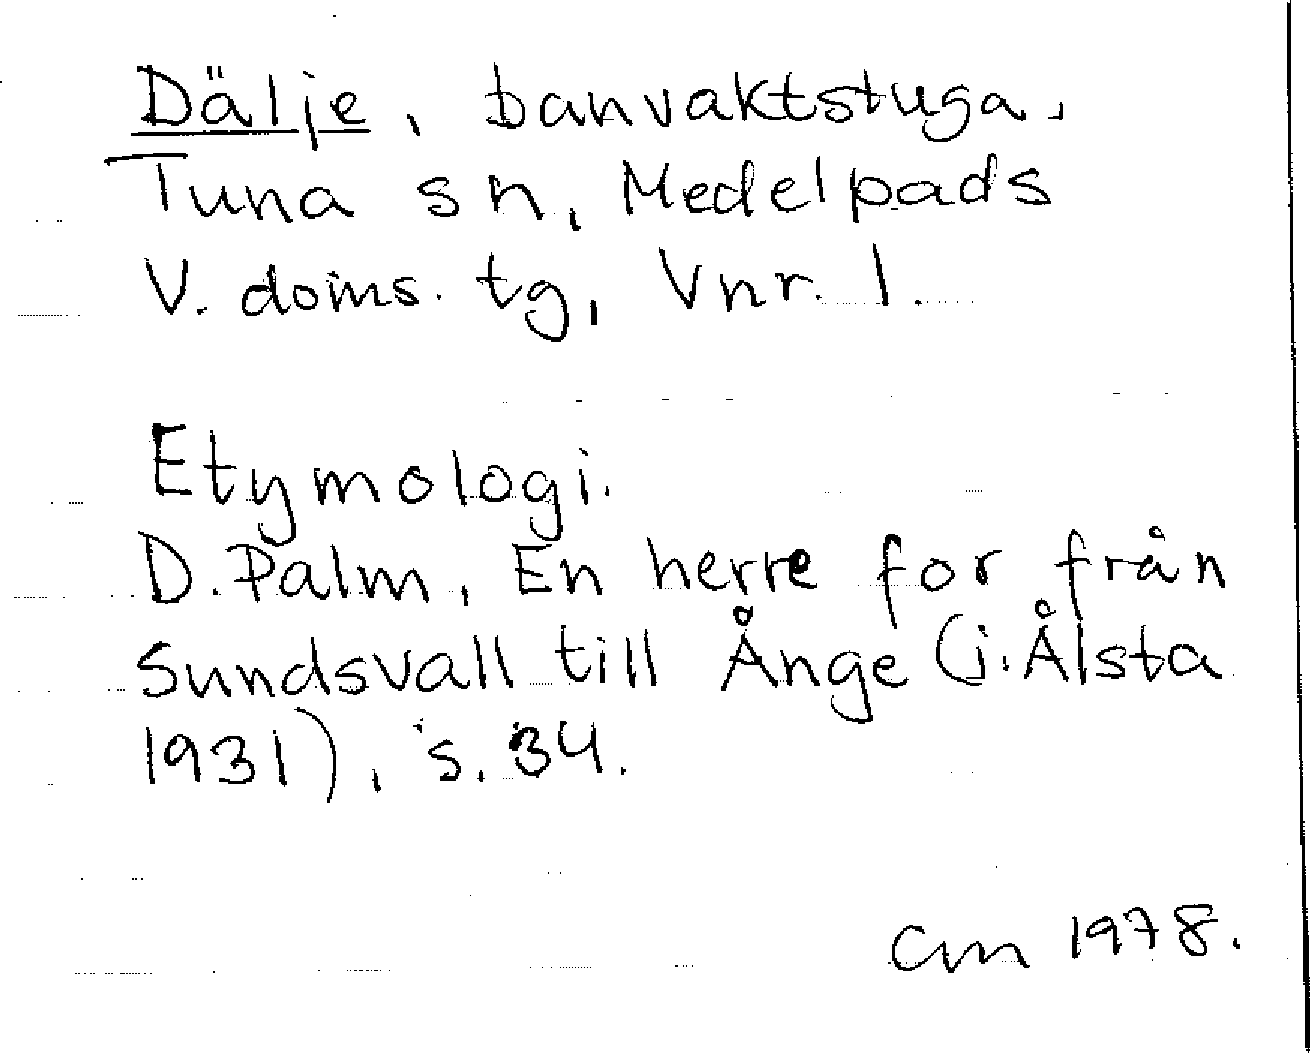 Dälje, banvaktstuga,
Tuna sn, Medelpads
V. doms. tg, Vnr. 1.
Etymologi.
D. Palm, En herre for från
Sundsvall till Ånge (i: Ålsta
1931), s. 34.
CM 1978.